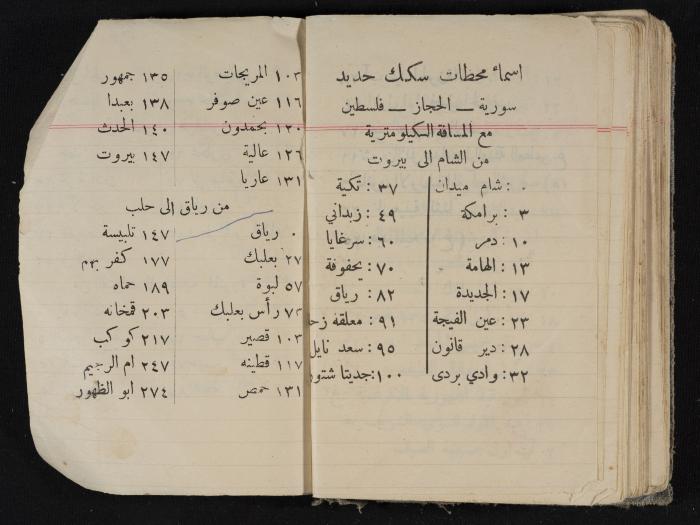 اسماء محطات سكك حديد
سورية ــ الحجاز ــ فلسطين
مع المسافة الكيلومترية
من الشام الى بيروت
٠ : شام ميدان
٣ : برامكة
١٠ : دمر
١٣ : الهامة
١٧ : الجديدة
٢٣ : عين الفيجة
٢٨ : دير قانون
٣٢ : وادي بردى
٣٧ : تكية
٤٩ : زبداني
٦٠ : سرغايا
٧٠ : يحفوفة
٨٢ : رياق
٩١ : معلقه زحلـ
٩٥ : سعد نايل
١٠٠ : جديتا شتورا
١٠٣ المريجات
١١٦ عين صوفر
١٢٠ بحمدون
١٢٦ عالية
١٣١ عاريا
١٣٥ جمهور
١٣٨ بعبدا
١٤٠ الحدث
١٤٧ بيروت
من رياق الى حلب
٠ رياق
٢٧ بعلبك
٥٧ لبوة
٧٣ رأس بعلبك
١٠٣ قصير
١١٧ قطينه
١٣١ حمص
١٤٧ تلبيسة
١٧٧ كفر بهم
١٨٩ حماه
٢٠٣ قمخانه
٢١٧ كوكب
٢٤٧ ام الرجيم
٢٧٤ ابو الظهور